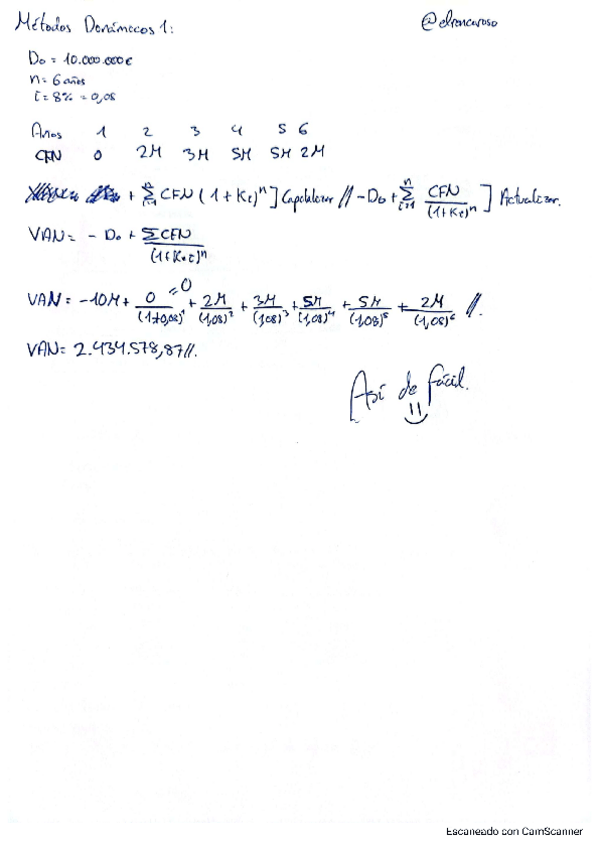 Métodos Dinámicos 1: @elrencuroso
Do = 10.000.000€
n = 6 años
i = 8% = 0,08
Años 1 2 3 4 5 6
CFN 0 2M 3M 5M 5M 2M
+ Σ CFN (1+Ki)ⁿ] Capitalizar // -Do + Σ CFN/(1+Ki)ⁿ ] Actualizar.
VAN = - Do + ΣCFN/(1+K·i)ⁿ
VAN = -10M + 0/(1+0,08)¹ = 0 + 2M/(1,08)² + 3M/(1,08)³ + 5M/(1,08)⁴ + 5M/(1,08)⁵ + 2M/(1,08)⁶ //.
VAN = 2.434.578,87//.
Así de fácil.
Escaneado con CamScanner